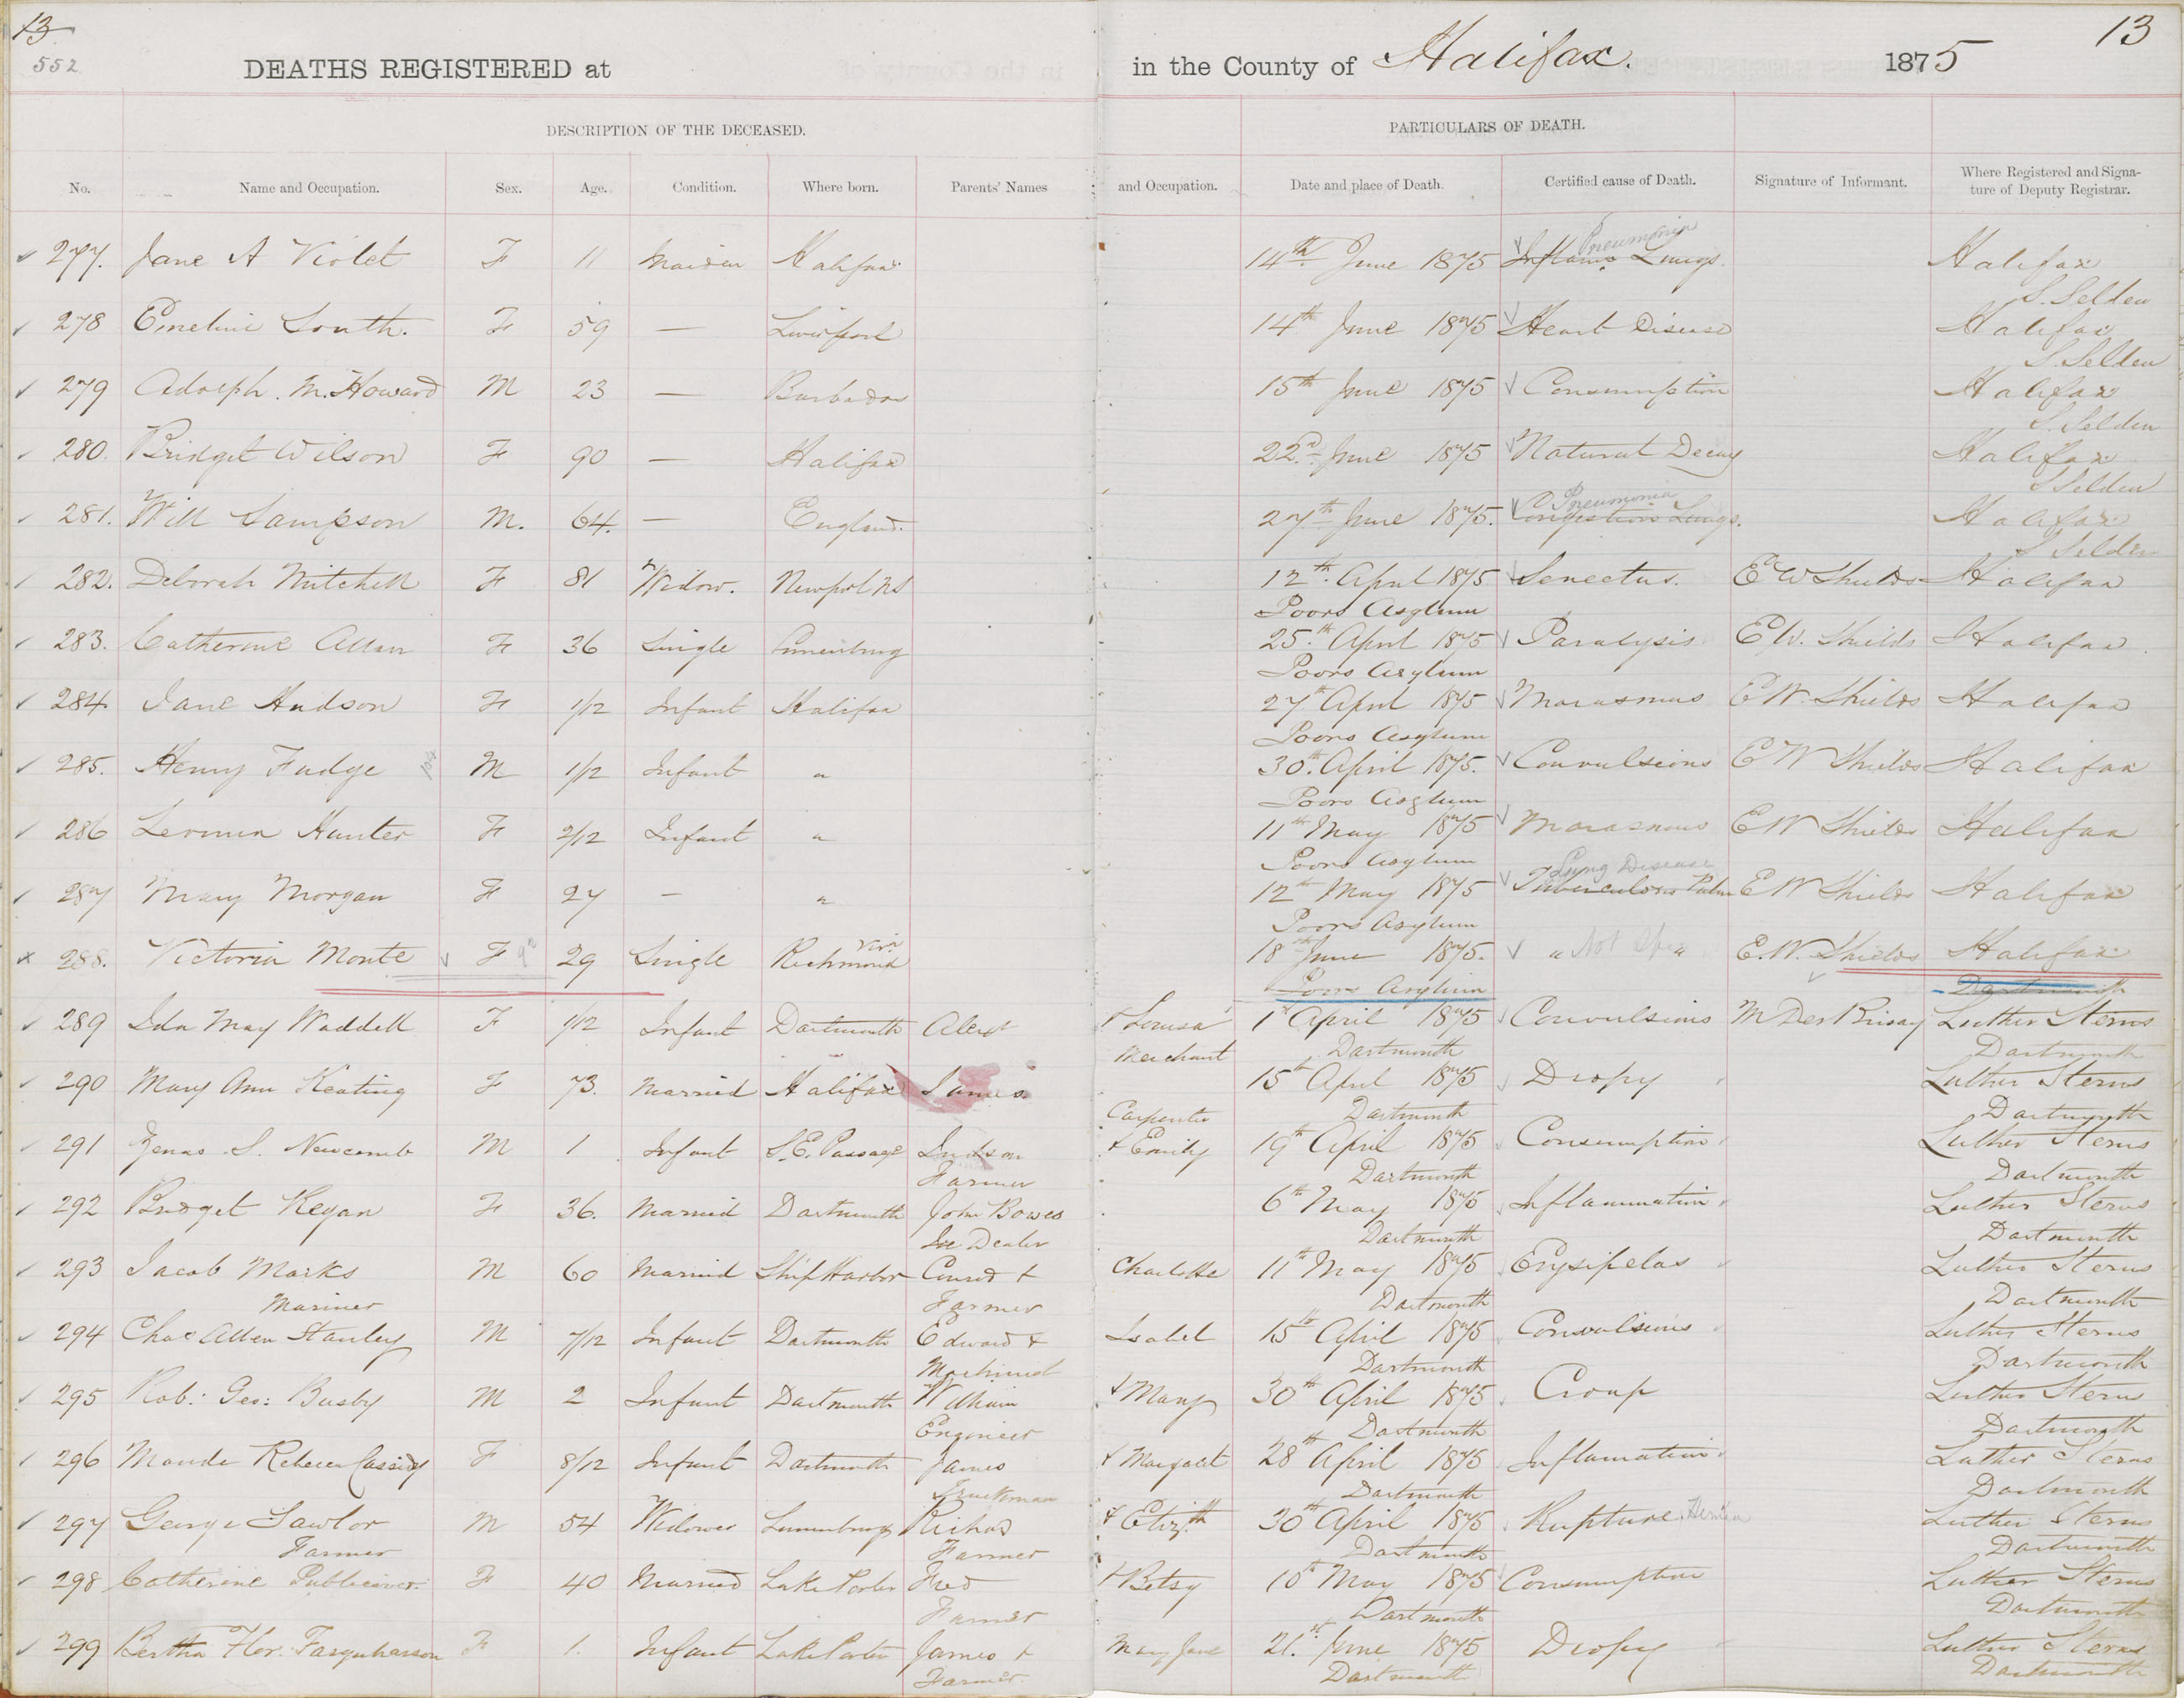 13 13
552
DEATHS REGISTERED at in the County of Halifax. 1875
DESCRIPTION OF THE DECEASED. PARTICULARS OF DEATH.
No. Name and Occupation. Sex. Age. Condition. Where born. Parents' Names and Occupation. Date and place of Death. Certified cause of Death. Signature of Informant. Where Registered and Signa-
ture of Deputy Registrar.
Pneumonia
277. Jane A Violet F 11 Maiden Halifax 14th June 1875 Inflam. Lungs. Halifax
S. Selden
278 Emeline South. F 59 — Liverpool 14th June 1875 Heart Disease Halifax
S. Selden
279 Adolph. M. Howard M 23 — Barbados 15th June 1875 Consumption Halifax
S. Selden
280. Bridget Wilson F 90 — Halifax 22nd June 1875 Natural Decay Halifax
S Selden
Pneumonia
281. Will Sampson M. 64. — England. 27th June 1875. Congestion Lungs. Halifax
S Selden
282. Deborah Mitchell F 81 Widow. Newport NS 12th April 1875 Senectus. E W Shields Halifax
Poors Asylum
283. Catherine Allan F 36 Single Lunenburg 25th April 1875 Paralysis E W. Shields Halifax
Poors Asylum
284. Jane Hudson F 1/12 Infant Halifax 27th April 1875 Marasmus E W. Shields Halifax
Poors Asylum
285. Henry Fudge M 1/12 Infant " 30th April 1875. Convulsions E W Shields Halifax
Poors Asylum
286 Hunter F 2/12 Infant " 11th May 1875 Marasmus E W Shields Halifax
Poors Asylum
Lung Disease
287 Mary Morgan F 27 — " 12th May 1875 Tuberculosis Pulm E W Shields Halifax
Poors Asylum
Virg
288. Victoria Monte F 29 Single Richmond 18th June 1875. " Not Spe " E. W. Shields Halifax
Poors Asylum Dartmouth
289 Ida May Waddell F 1/12 Infant Dartmouth Alexr + Louisa 1st April 1875 Convulsions M Des Brisay Luther Sterns
Merchant Dartmouth Dartmouth
290 Mary Ann Keating F 73. Married Halifax James 15th April 1875 Dropy Luther Sterns
Carpenter Dartmouth Dartmouth
291 Zenas S. Newcomb M 1 Infant S.E. Passage Judson + Emily 19th April 1875 Consumption Luther Sterns
Farmer Dartmouth Dartmouth
292 Bridget Regan F 36. Married Dartmouth John Bowes 6th May 1875 Inflammation Luther Sterns
Ice Dealer Dartmouth Dartmouth
293 Jacob Marks M 60 Married Ship Harbor Conrad + Charlotte 11th May 1875 Erysipelas Luther Sterns
Mariner Farmer Dartmouth Dartmouth
294 Chas Allen Stanley M 7/12 Infant Dartmouth Edward + Isabel 15th April 1875 Convulsions Luther Sterns
Machinist Dartmouth Dartmouth
295 Rob: Geo: Busby M 2 Infant Dartmouth William + Mary 30th April 1875 Croup Luther Sterns
Engineer Dartmouth Dartmouth
296 Maude Rebecca Cassidy F 8/12 Infant Dartmouth James + Margaret 28th April 1875 Inflamation Luther Sterns
Truckman Dartmouth Dartmouth
297 George Lawlor M 54 Widower Lunenburg Richad + Elizth 30th April 1875 Rupture. Hernia Luther Sterns
Farmer Farmer Dartmouth Dartmouth
298 Catherine Publicover. F 40 Married Lake Porter Fred + Betsy 10th May 1875 Consumption Luther Sterns
Farmer Dartmouth Dartmouth
299 Bertha Flor. Farquharson F 1. Infant Lake Porter James + Mary Jane 21st June 1875 Dropy Luther Sterns
Farmer. Dartmouth Dartmouth